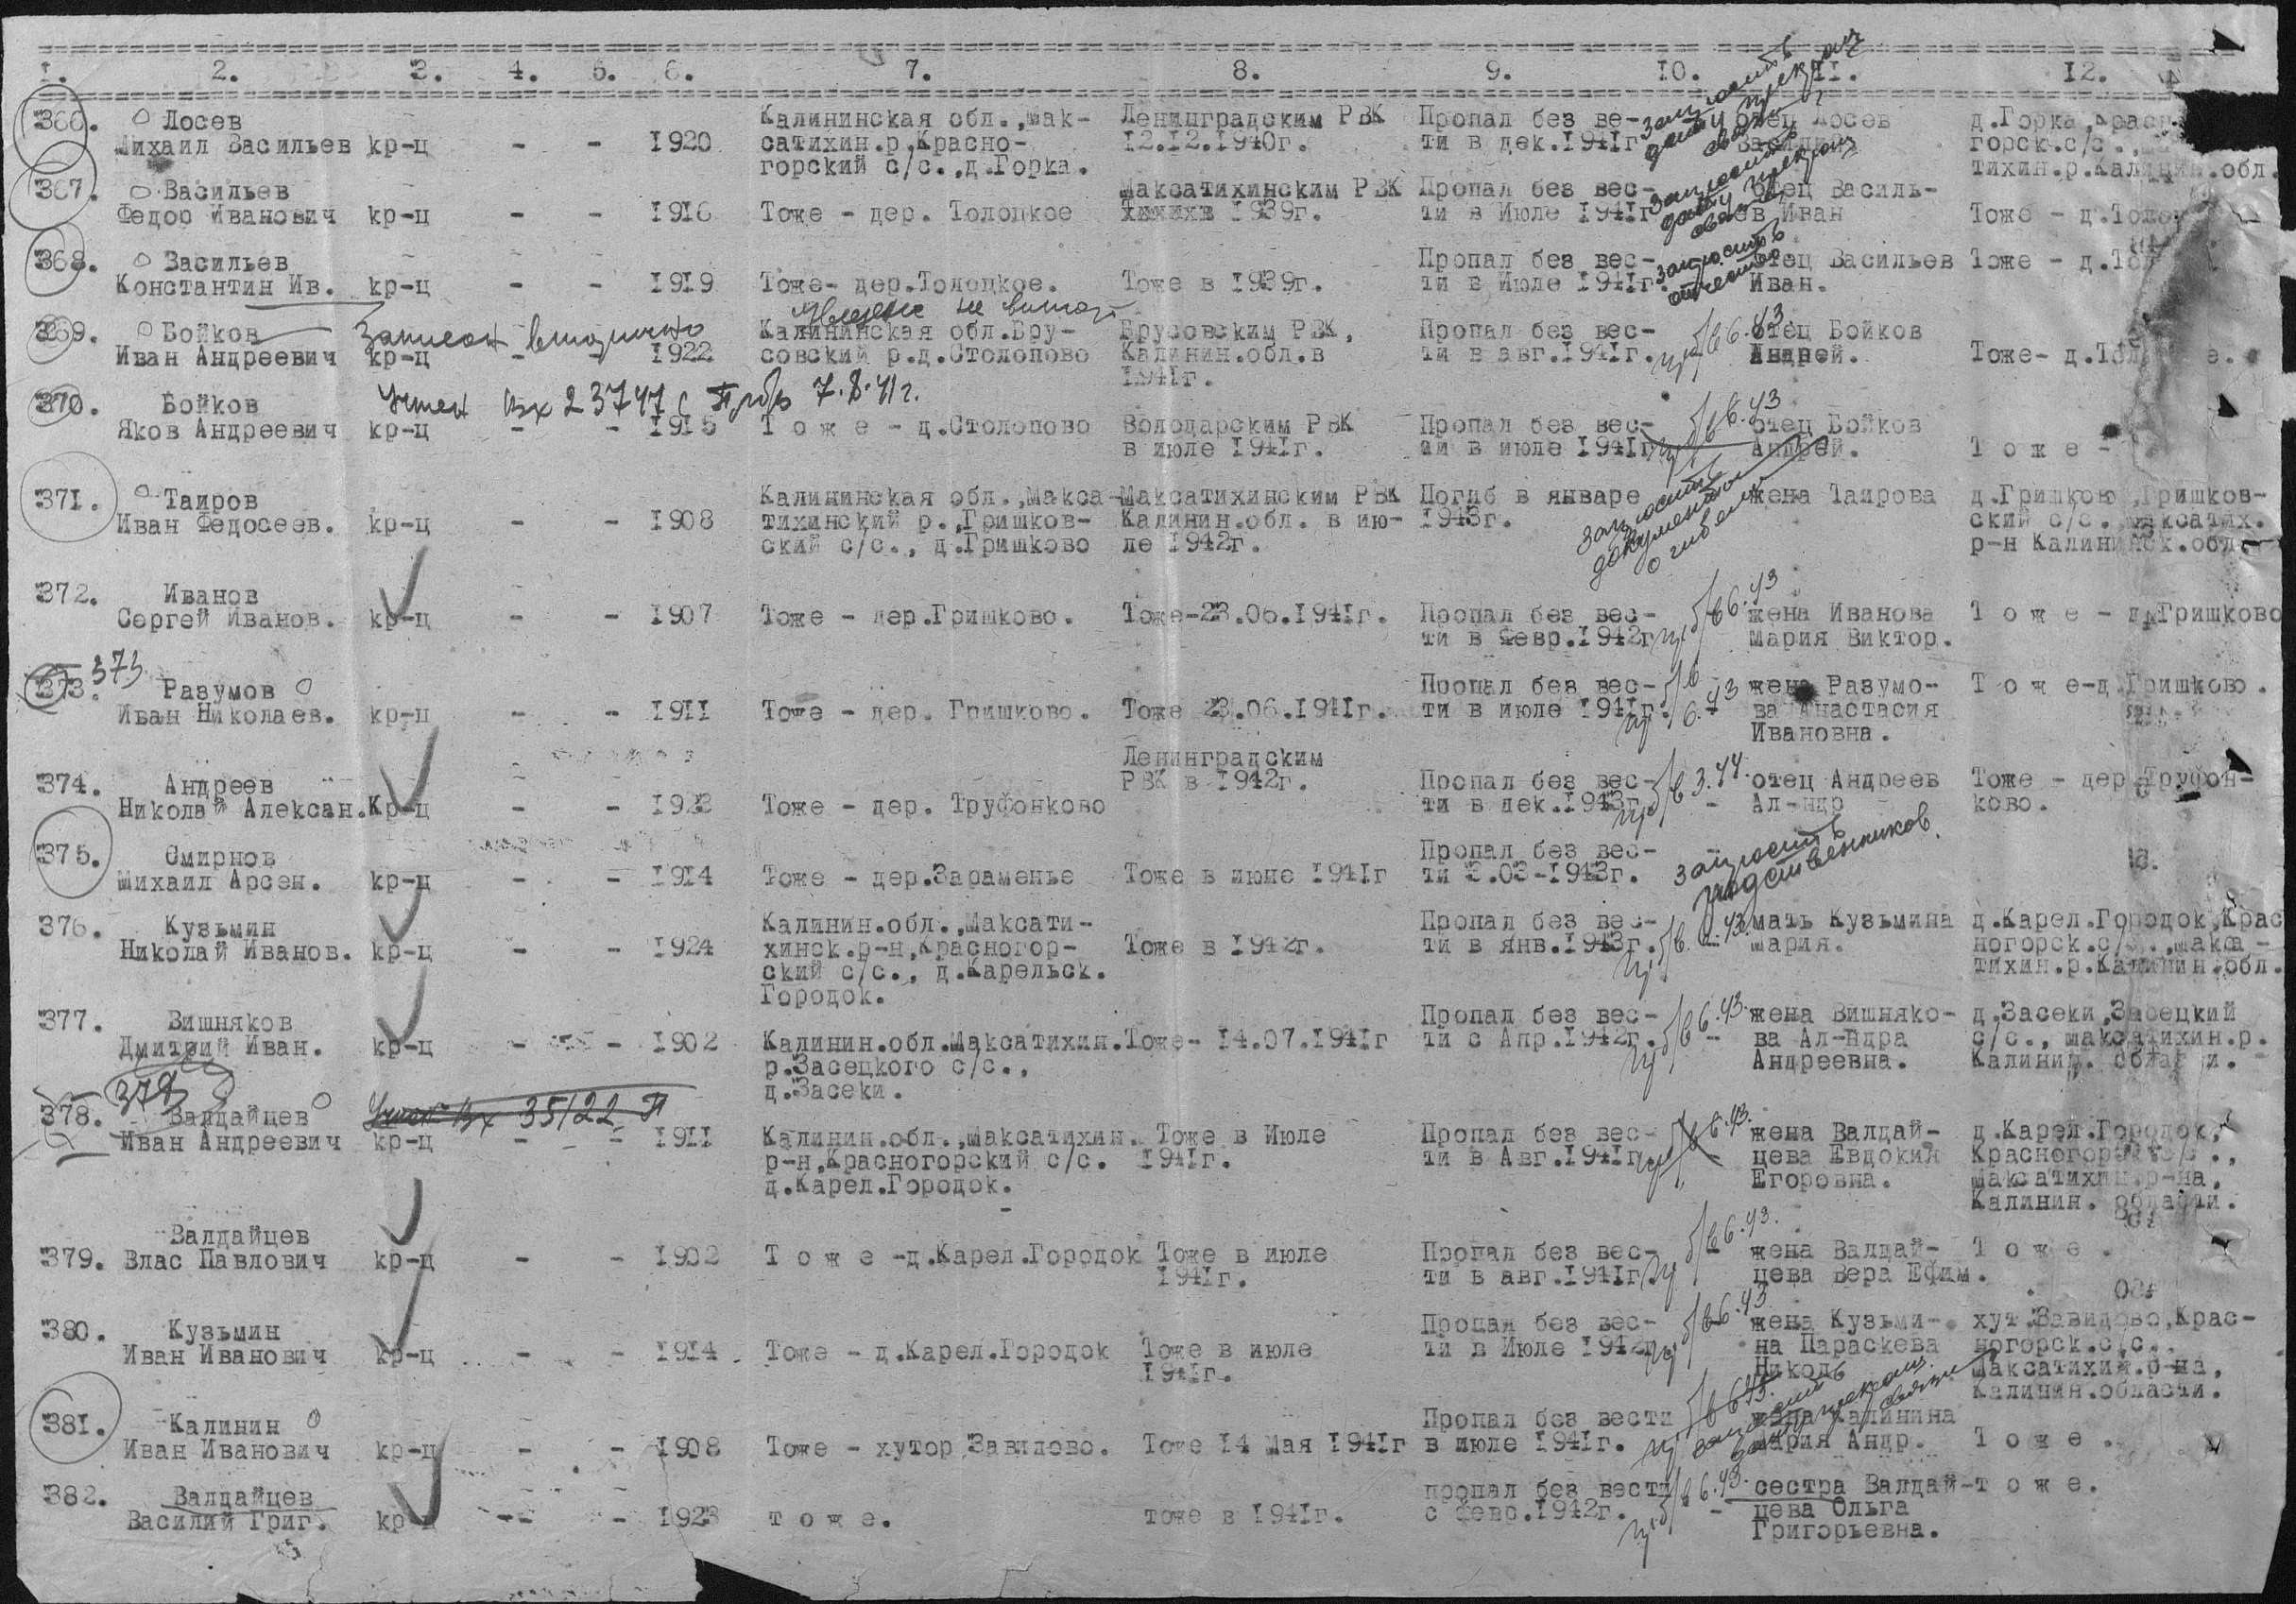 1. 2. 3. 4. 5. 6. 7. 8. 9. 10. 11. 12.
366. Лосев
Михаил Васильев кр-ц - - 1920
Калининская обл.,Мак-
сатихин.р.Красно-
горский с/с.,д.Горка.
Ленинградским РВК
12.12.1940г.
Пропал без ве-
сти в дек.1941г
запросить
дату прекращ
связи
отец Лосев
Василий
д.Горка,
горск.с/с.,
тихин.р.Калинин.обл.
367. Васильев
Федор Иванович кр-ц - - 1916 Тоже - дер. Толоцкое
Максатихинским РВК
1939г.
Пропал без вес-
ти в Июле 1941г
запросить
дату прекращ
связи
отец Василь-
ев Иван
Тоже - д.
368. Васильев
Константин Ив. кр-ц - - 1919 Тоже- дер.Толоцкое. Тоже в 1939г.
Пропал без вес-
ти в Июле 1941г.
запросить
отчество
отец Васильев
Иван.
Тоже - д.
369. Бойков
Записан вторично
Иван Андреевич кр-ц - - 1922
Калининская обл.Бру-
совский р.д.Столопово
Брусовским РВК,
Калинин.обл.в
1941г.
Пропал без вес-
ти в авг.1941г.
6.43
отец Бойков
Андрей.
Тоже- д.
370. Бойков
Учтен вх 23747 с 7.8.41г.
Яков Андреевич кр-ц - - 1915 Т о ж е - д.Столопово
Володарским РВК
в июле 1941г.
Пропал без вес-
ти в июле 1941г
6.43
отец Бойков
Андрей.
Т о ж е -
371. Таиров
Иван Федосеев. кр-ц - - 1908
Калининская обл.,Макса-
тихинский р.,Гришков-
ский с/с., д.Гришково
Максатихинским РВК
Калинин.обл. в ию-
ле 1942г.
Погиб в январе
1943г.
запросить
документы
о гибели
жена Таирова
д.Гришково,Гришков-
ский с/с. Максатих.
р-н Калининск.обл.
372. Иванов
Сергей Иванов. кр-ц - - 1907 Тоже - дер.Гришково. Тоже-23.06.1941г.
Пропал без вес-
ти в Февр.1942г
6.43
жена Иванова
Мария Виктор.
Т о ж е - д.Гришково
373. 373
Разумов
Иван Николаев. кр-ц - - 1911 Тоже - дер. Гришково. Тоже 23.06.1941г.
Пропал без вес-
ти в июле 1941г.
6.43
жена Разумо-
ва Анастасия
Ивановна.
Т о ж е-д.Гришково.
374. Андреев
Николай Алексан.Кр-ц - - 1923 Тоже - дер. Труфонково
Ленинградским
РВК в 1942г.
Пропал без вес-
ти в дек.1943г.
3.44.
отец Андреев
Ал-ндр
Тоже - дер.Труфон-
ково.
375. Смирнов
Михаил Арсен. кр-ц - - 1914 Тоже - дер.Зараменье Тоже в июне 1941г
Пропал без вес-
ти 3.03-1943г.
запросить
родственников.
376. Кузьмин
Николай Иванов. кр-ц - - 1924
Калинин.обл.,Максати-
хинск.р-н,Красногор-
ский с/с., д.Карельск.
Городок.
Тоже в 1942г.
Пропал без вес-
ти в янв.1943г.
мать Кузьмина
Мария.
д.Карел.Городок,Крас
ногорск.с/с.,Макса-
тихин.р.Калинин.обл.
377. Вишняков
Дмитрий Иван. кр-ц - - 1902
Калинин.обл.Максатихин.
р.Засецкого с/с.,
д.Засеки.
Тоже- 14.07.1941г
Пропал без вес-
ти с Апр.1942г.
6.43.
жена Вишняко-
ва Ал-ндра
Андреевна.
д.Засеки,Засецкий
с/с., Максатихин.р.
Калинин. области.
378. Валдайцев
Учтен вх 35122 П
Иван Андреевич кр-ц - - 1911
Калинин.обл.,Максатихин.
р-н,Красногорский с/с.
д.Карел.Городок.
Тоже в Июле
1941г.
Пропал без вес-
ти в Авг.1941г
6.43.
жена Валдай-
цева Евдокия
Егоровна.
д.Карел.Городок,
Максатихин.р-на,
Калинин. области.
Валдайцев
379. Влас Павлович кр-ц - - 1902 Т о ж е -д.Карел.Городок
Тоже в июле
1941г.
Пропал без вес-
ти в авг.1941г.
6.43.
жена Валдай-
цева Вера Ефим.
Т о ж е .
380. Кузьмин
Иван Иванович кр-ц - - 1914 Тоже - д.Карел.Городок
Тоже в июле
1941г.
Пропал без вес-
ти в Июле 1942г
6.43
жена Кузьми-
на Параскева
Николь
хут.Завидово,Крас-
ногорск.с/с.
Максатихин.р-на,
Калинин.области.
381. Калинин
Иван Иванович кр-ц - - 1908 Тоже - хутор Завидово. Тоже 14 Мая 1941г
Пропал без вести
в июле 1941г.
6.43.
запросить
дату прекращ.
связи
жена Калинина
Мария Андр.
Т о ж е .
382. Валдайцев
Василий Григ. - - 1923 т о ж е. тоже в 1941г.
пропал без вести
с февр.1942г.
6.43.
сестра Валдай-
цева Ольга
Григорьевна.
т о ж е.